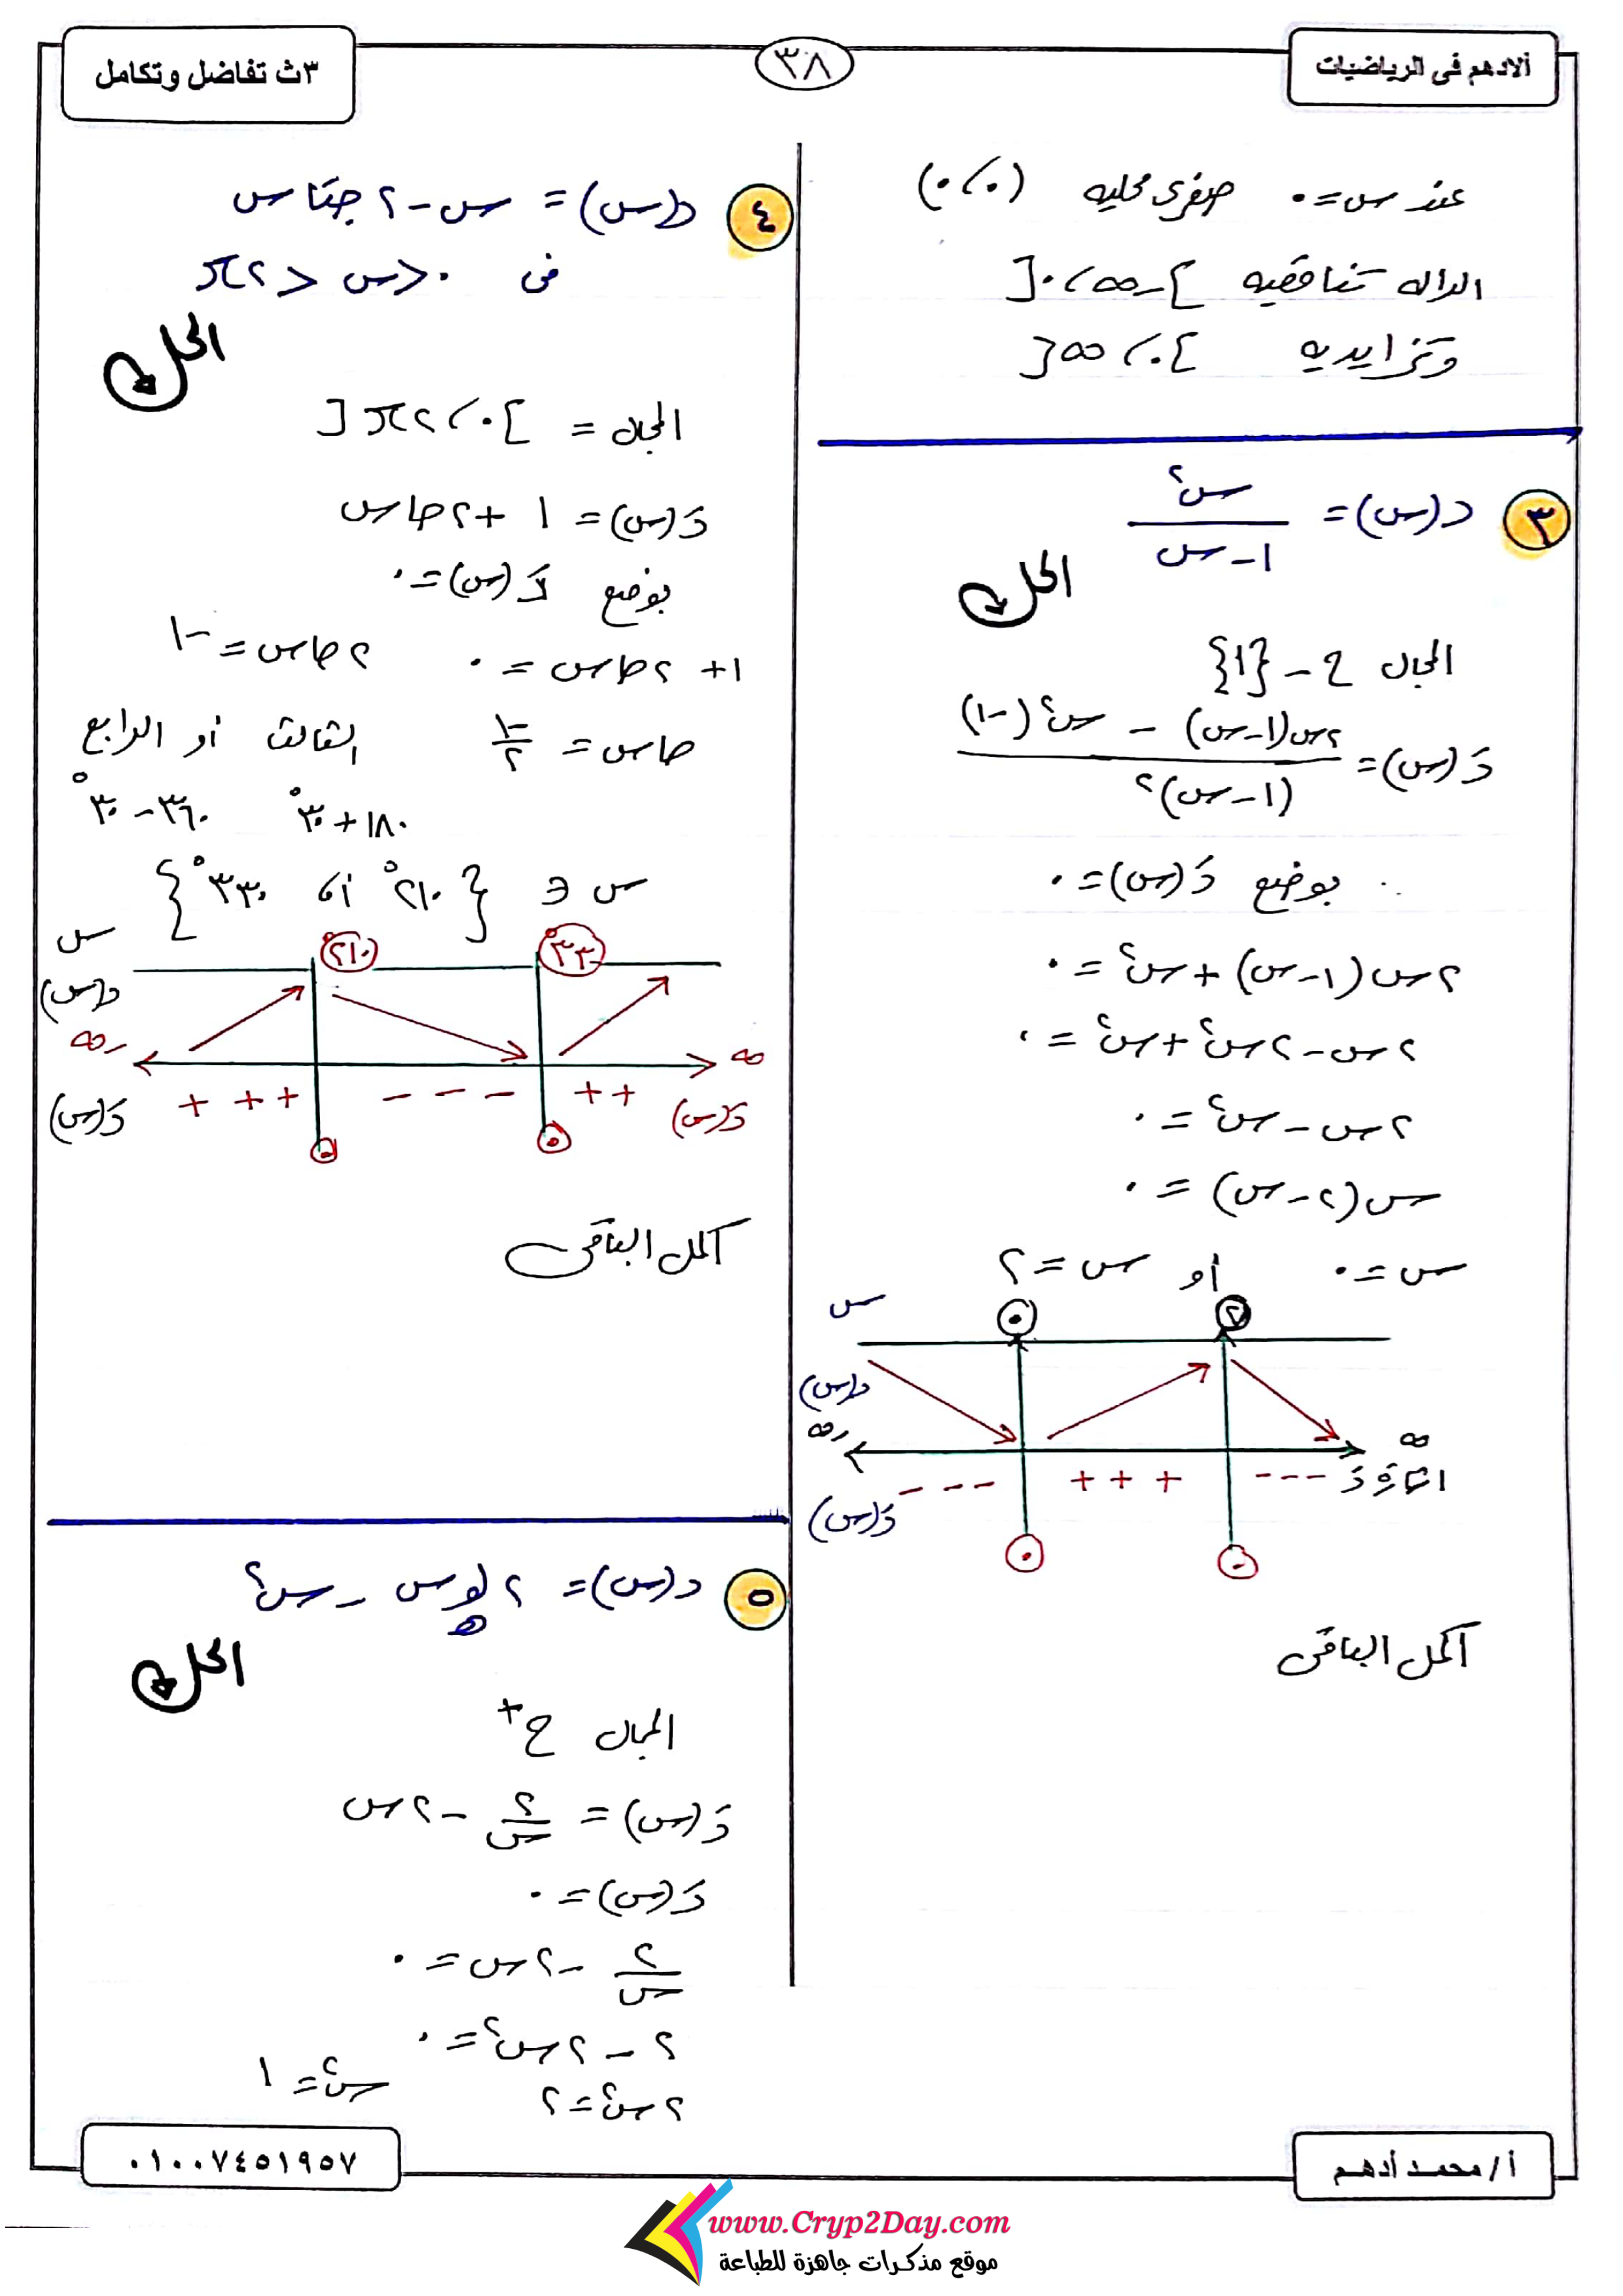 ألادهم فى الرياضيات
٣٨
٣ث تفاضل وتكامل
عند س = ٠ صغرى محليه (٠، ٠)
الداله تناقصيه ]-∞، ٠[
وتزايديه ]٠، ∞[
٣ د(س) = س٢ / ١-س
الحل
المجال ح - {١}
دَ(س) = ٢س(١-س) - س٢(-١) / (١-س)٢
بوضع دَ(س) = ٠
٢س(١-س) + س٢ = ٠
٢س - ٢س٢ + س٢ = ٠
٢س - س٢ = ٠
س(٢-س) = ٠
س = ٠ أو س = ٢
س ٠ ٢
د(س)
-∞ ∞
دَ(س) - - - + + + - - - اشارة دَ
٠ ٠
اكمل الباقى
٤ د(س) = س - ٢ جتاس
فى ٠ < س < ٢π
الحل
المجال = ]٠، ٢π[
دَ(س) = ١ + ٢ جاس
بوضع دَ(س) = ٠
١ + ٢ جاس = ٠ ٢ جاس = -١
جاس = -١/٢ الثالث أو الرابع
١٨٠ + ٣٠° ٣٦٠ - ٣٠°
س ∈ {٢١٠° أ، ٣٣٠°}
س ٢١٠° ٣٣٠°
د(س)
-∞ ∞
دَ(س) + + + - - - - + + دَ(س)
٠ ٠
اكمل الباقى
٥ د(س) = ٢ لو هـ س - س٢
الحل
المجال ح+
دَ(س) = ٢/س - ٢س
دَ(س) = ٠
٢/س - ٢س = ٠
٢ - ٢س٢ = ٠
٢س٢ = ٢ س٢ = ١
أ/ محمد أدهم
٠١٠٠٧٤٥١٩٥٧
www.Cryp2Day.com
موقع مذكرات جاهزة للطباعة